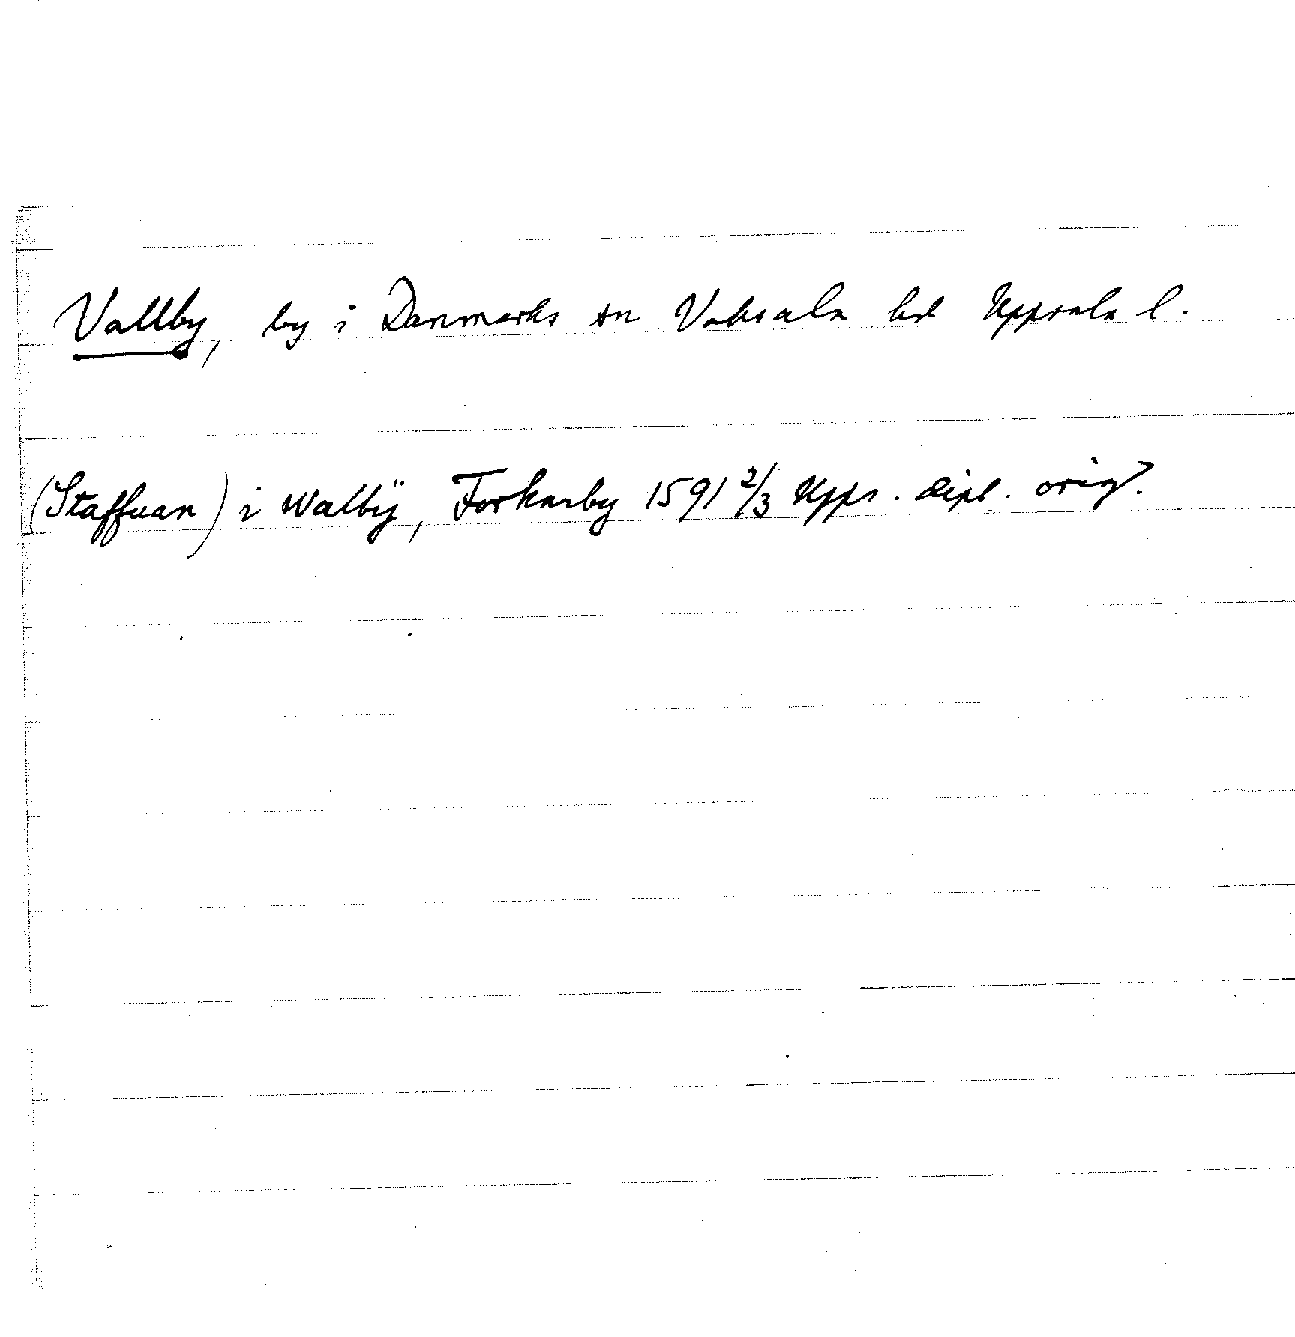 Vallby, by i Danmarks sn Vaksala hd Uppsala l.
(Staffuan) i Walbÿ, Forkarby 1591 2/3 Upps. dipl. orig.